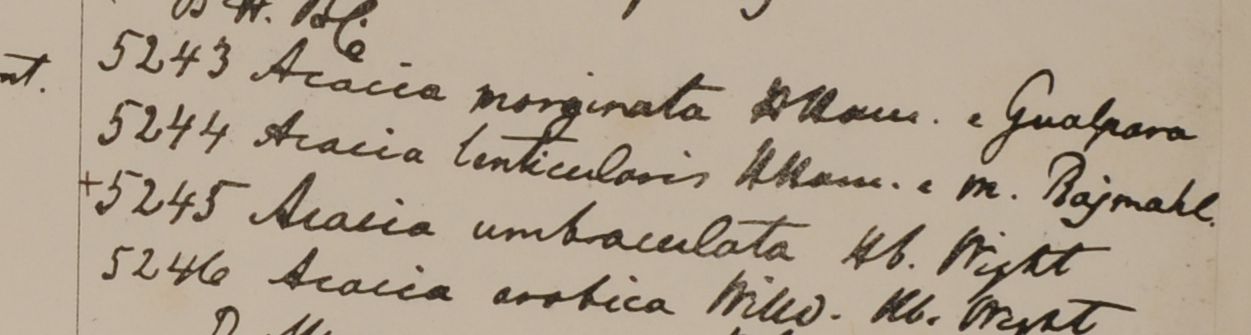 B H. Bl.
nt.
5243 Acacia marginata HHam. e Gualpara
5244 Acacia lenticularis HHam. e m. Rajmahl.
+5245 Acacia umbraculata Hb. Wight
5246 Acacia arabica Willd. Hb. Wight